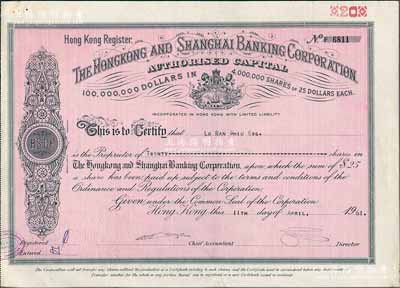 20
Hong Kong Register.
No F 6811
THE HONGKONG AND SHANGHAI BANKING CORPORATION.
AUTHORISED CAPITAL
100,000,000 DOLLARS IN 4,000,000 SHARES OF 25 DOLLARS EACH.
INCORPORATED IN HONG KONG WITH LIMITED LIABILITY
This is to Certify that
is the Proprietor of TWENTY shares in
The Hongkong and Shanghai Banking Corporation, upon which the sum of $25
a share has been paid up subject to the terms and conditions of the
Ordinance and Regulations of the Corporation.
Given under the Common Seal of the Corporation
Hong Kong this 11TH day of APRIL, 1961.
Registered
Entered
Chief Accountant
Director